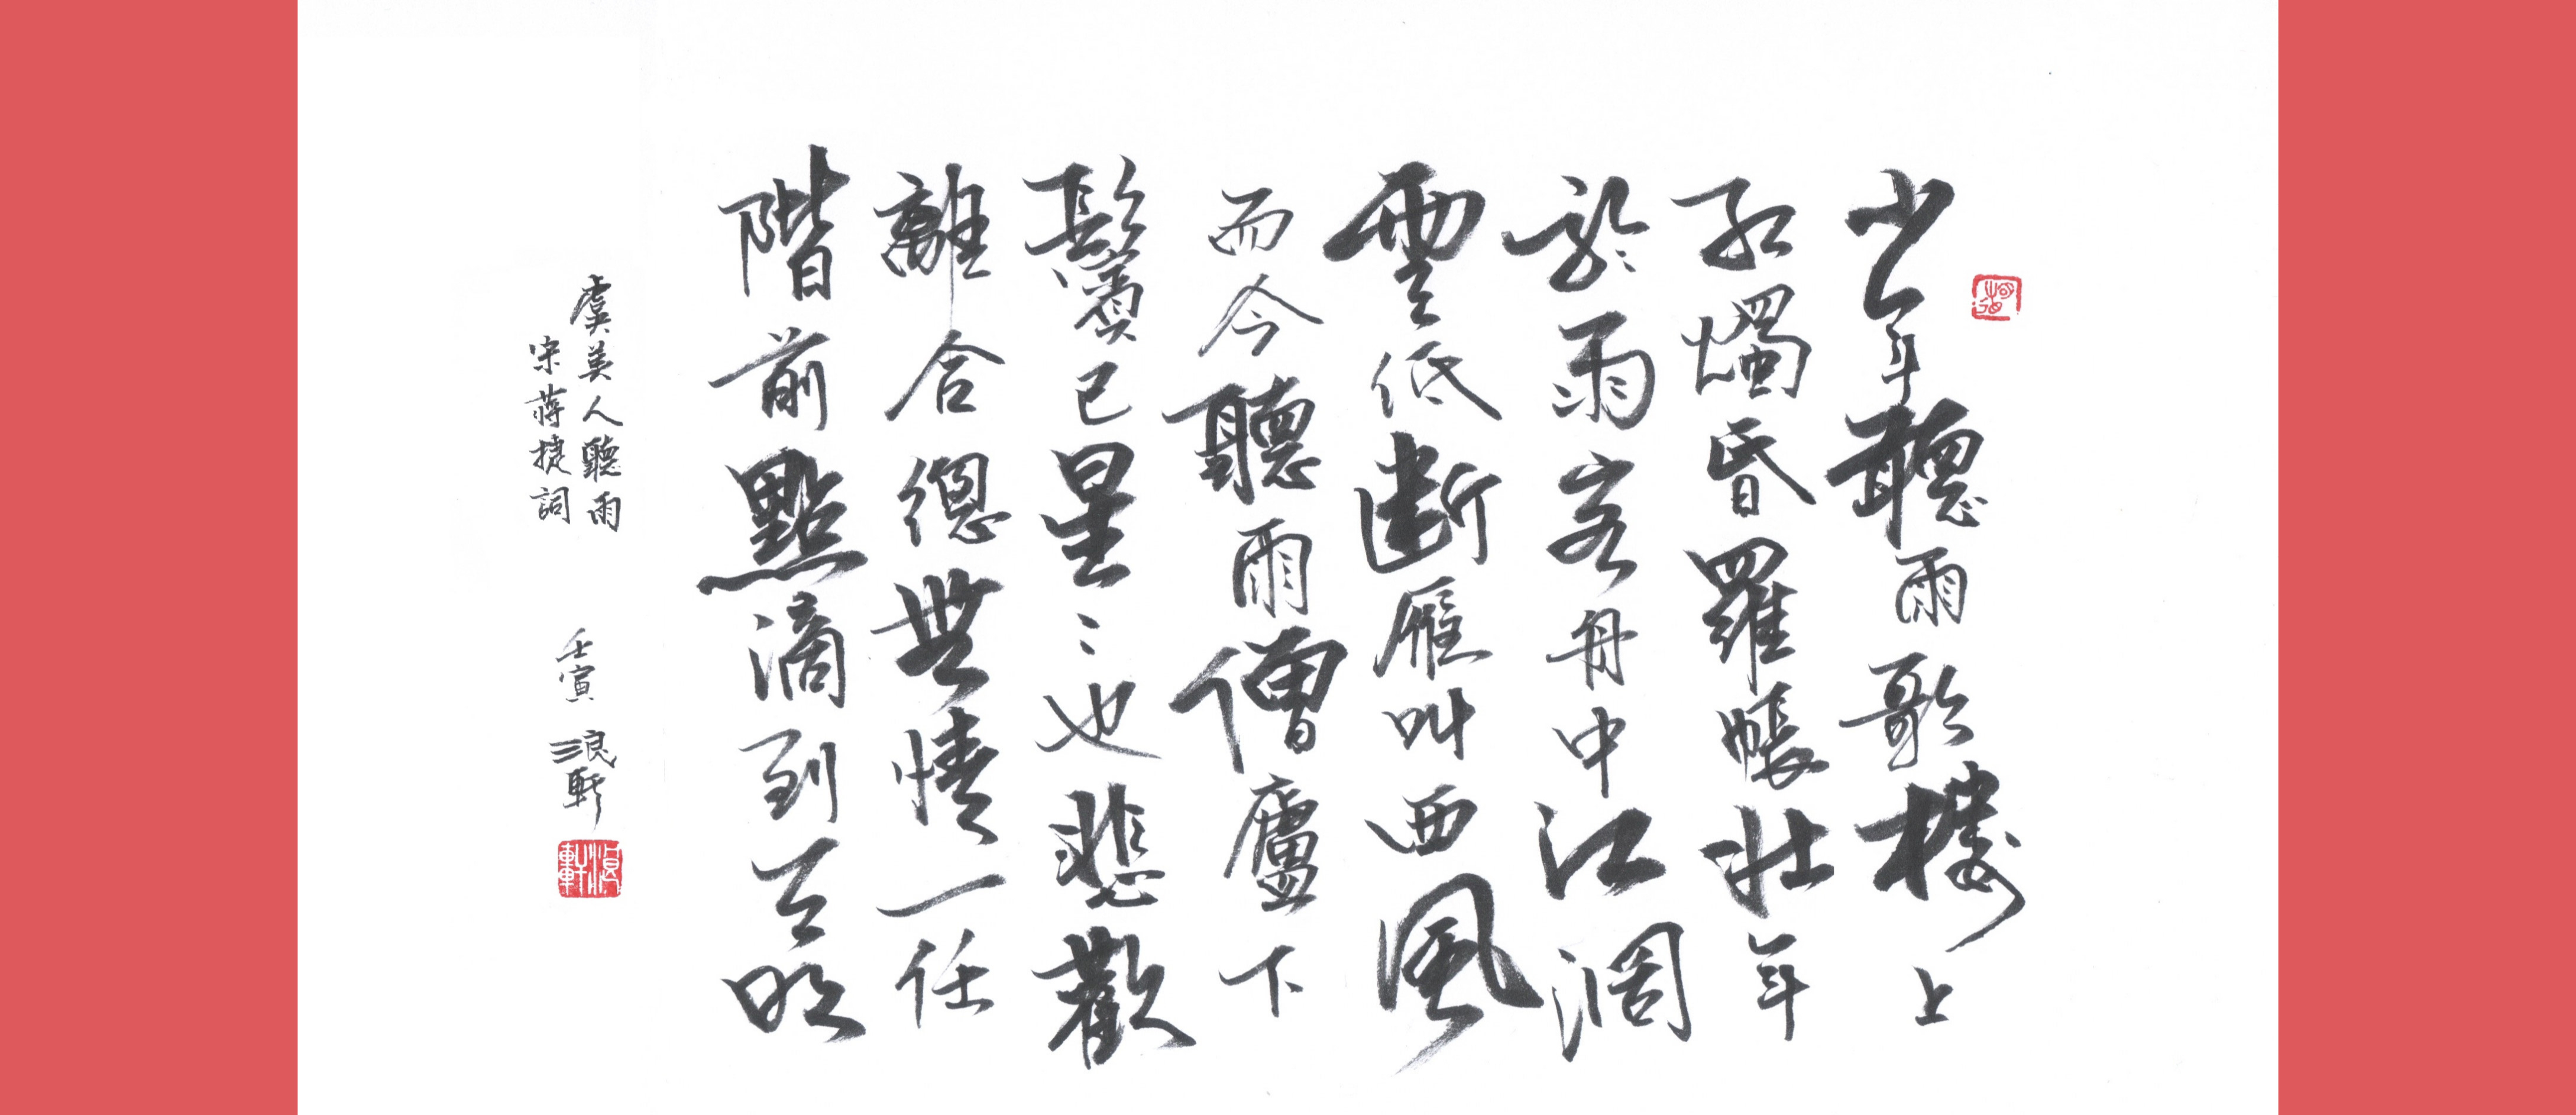 少年聽雨歌樓上
紅燭昏羅帳壯年
聽雨客舟中江闊
雲低斷雁叫西風
而今聽雨僧廬下
鬢已星〻也悲歡
離合總無情一任
階前點滴到天明
虞美人聽雨
宋蔣捷詞
壬寅 浪軒
浪軒